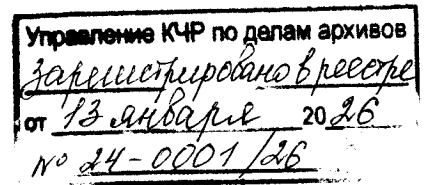 Управление КЧР по делам архивов
Зарегистрировано в реестре
от 13 января 2026
№ 24-0001/26